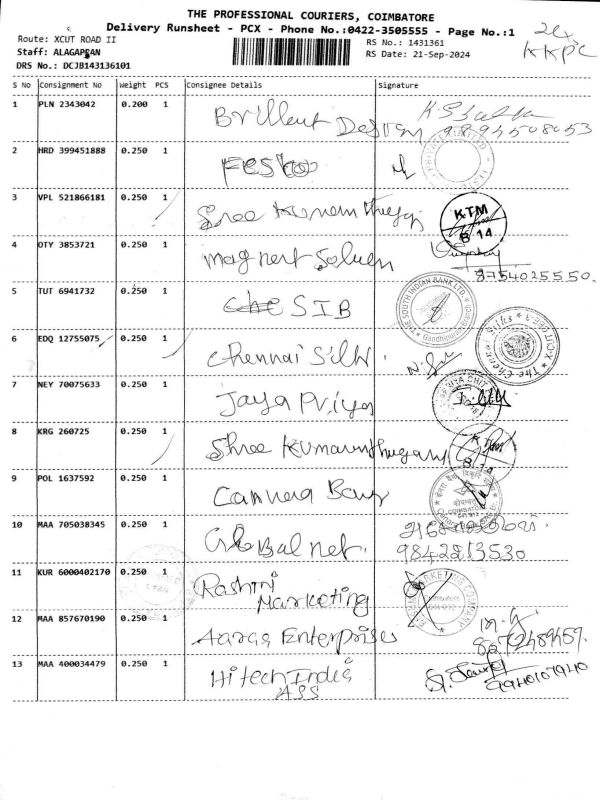 THE PROFESSIONAL COURIERS, COIMBATORE
Delivery Runsheet - PCX - Phone No.:0422-3505555 - Page No.:1
Route: XCUT ROAD II
RS No.: 1431361
KKPC
Staff: ALAGAPPAN
RS Date: 21-Sep-2024
DRS No.: DCJB143136101
S No Consignment No Weight PCS Consignee Details Signature
1 PLN 2343042 0.200 1 Brillent Design
2 HRD 399451888 0.250 1 Festo
3 VPL 521866181 0.250 1 Sree Kumaran KTM B 14
4 OTY 3853721 0.250 1 Magnert Soluen 8754025550.
5 TUT 6941732 0.250 1 SIB THE SOUTH INDIAN BANK LTD.
6 EDQ 12755075 0.250 1 Chennai Silk. The Chennai Silks
7 NEY 70075633 0.250 1 Jaya Priya
8 KRG 260725 0.250 1 Shree Kumaran KTM B 14
9 POL 1637592 0.250 1 Cannera Bank
10 MAA 705038345 0.250 1 Global net. 9842213530
11 KUR 6000402170 0.250 1 Rashini
Marketing
12 MAA 857670190 0.250 1 Aaras Enterprises
13 MAA 400034479 0.250 1 Hitech India
ASS 9940107940